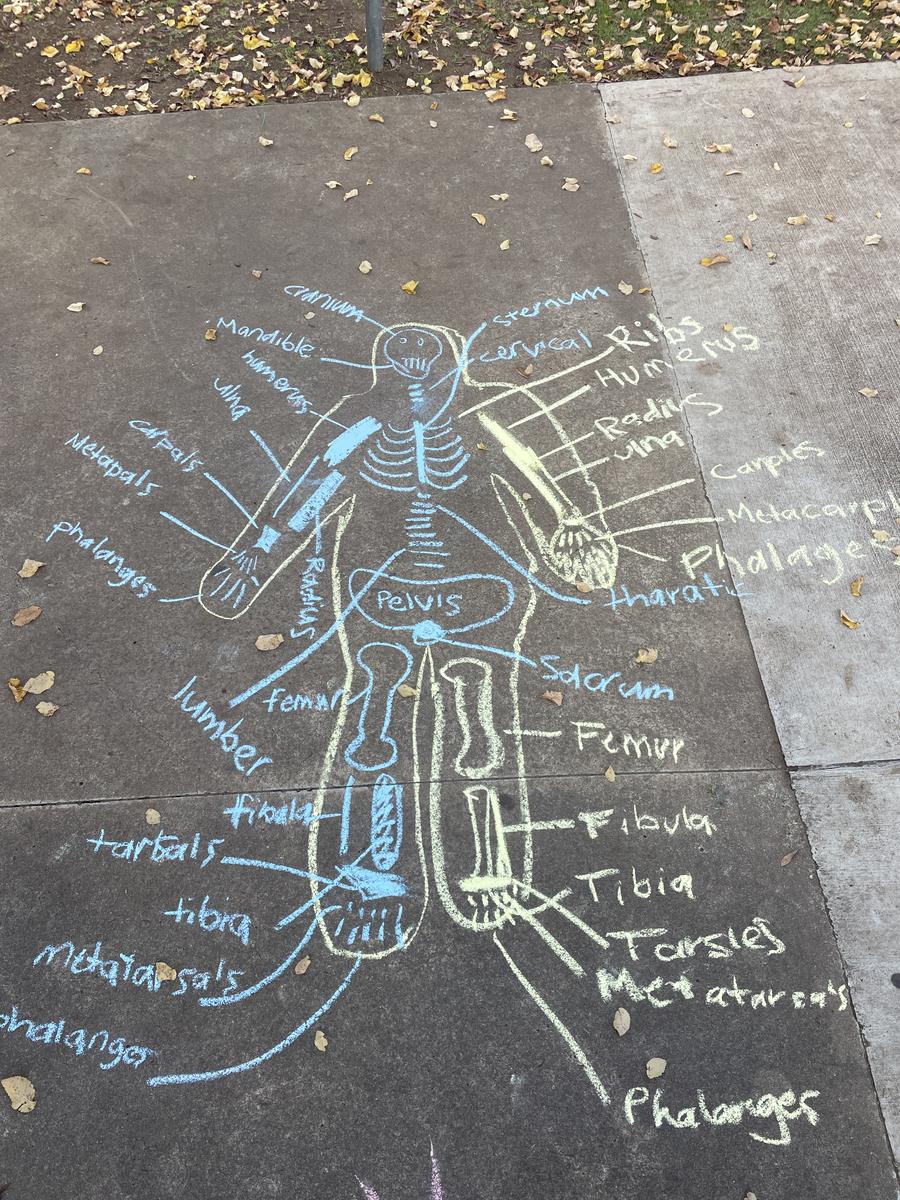 cranium
sternum
Mandible
cervical
Ribs
Humerus
humerus
ulna
Radius
ulna
carpals
Carples
Metapals
Metacarpl
phalanges
Phalages
Radius
tharatic
Pelvis
Sacrum
lumber
femur
Femur
fibula
Fibula
tarbals
Tibia
tibia
Tarsles
Metatarsals
Metatarsals
phalanges
Phalanges